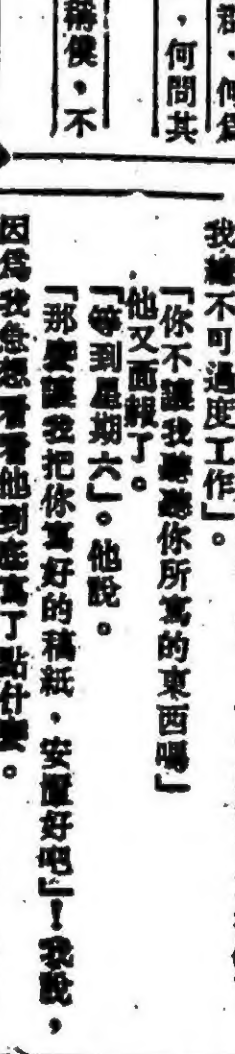 ，何問其
稱僕，不
我總不可過度工作」。
「你不讓我聽聽你所寫的東西嗎」
他又面赧了。
「等到星期六」。他說。
「那麼讓我把你寫好的稿紙，安置好吧」！我說，
因爲我急想看看他到底寫了點什麼。